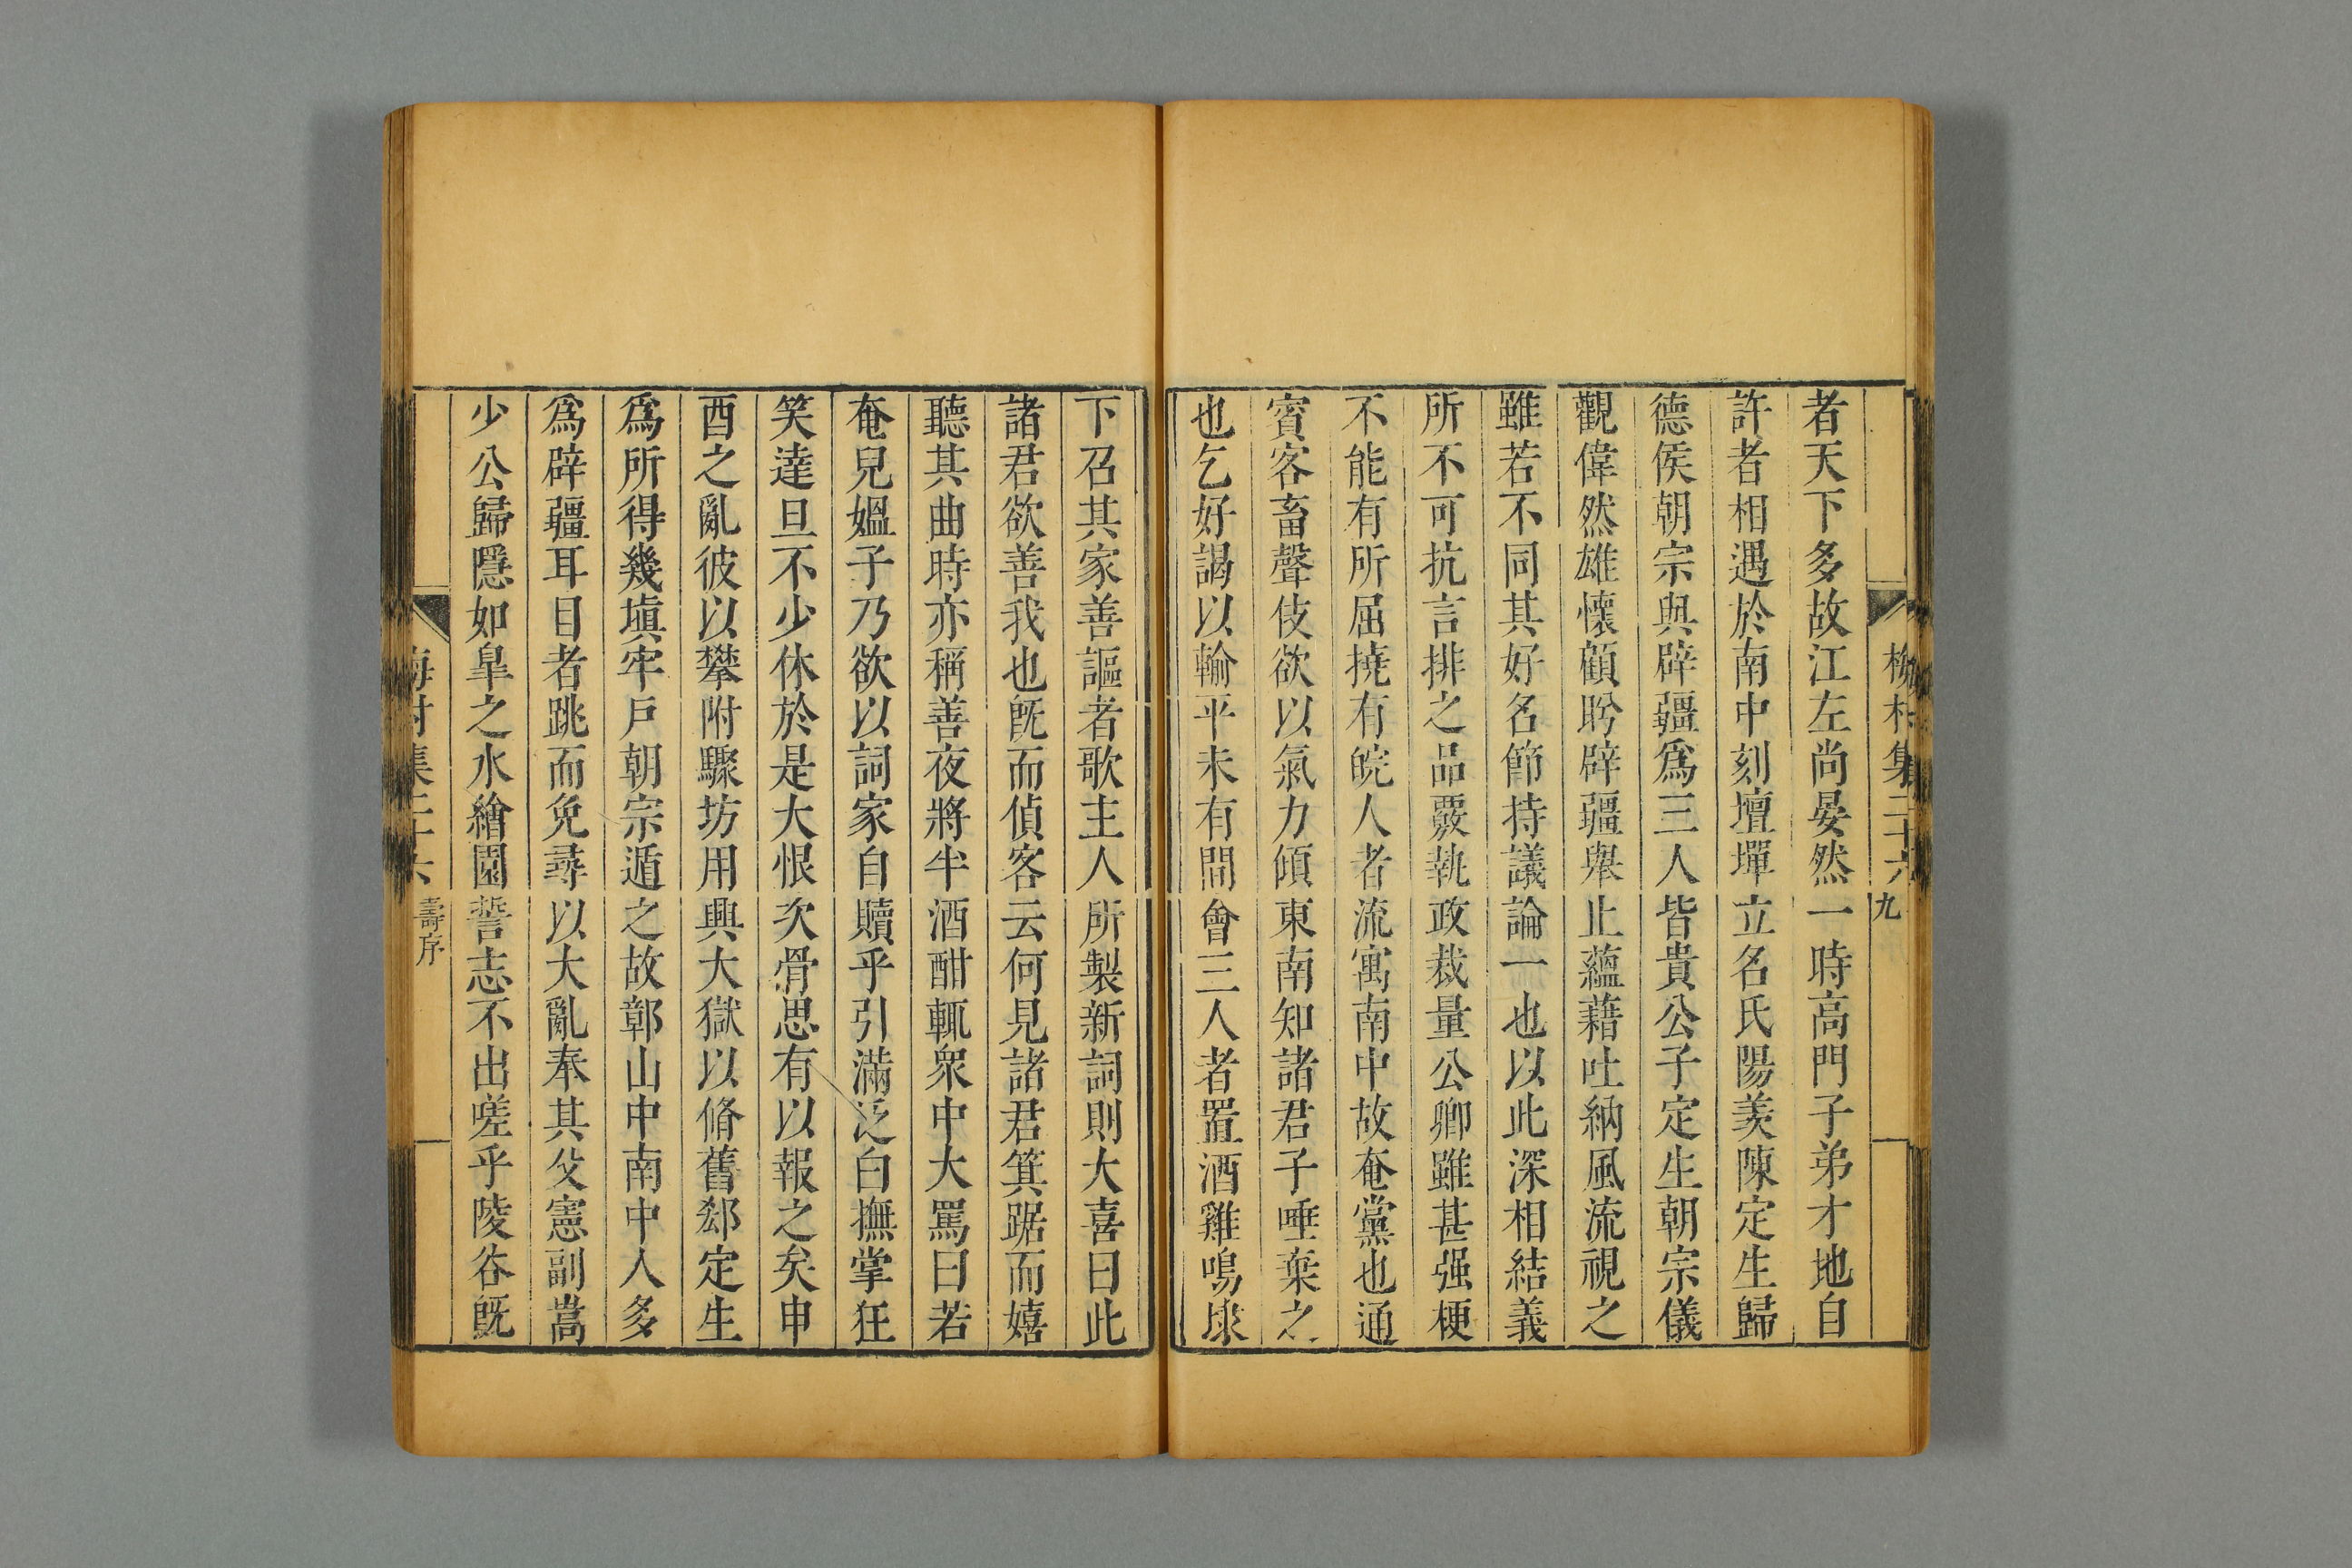 梅村集二十六
九
者天下多故江左尚晏然一時高門子弟才地自
許者相遇於南中刻壇墠立名氏陽羨陳定生歸
德侯朝宗與辟疆爲三人皆貴公子定生朝宗儀
觀偉然雄懷顧盻辟疆舉止蘊藉吐納風流視之
雖若不同其好名節持議論一也以此深相結義
所不可抗言排之品覈執政裁量公卿雖甚强梗
不能有所屈撓有皖人者流寓南中故奄黨也通
賓客畜聲伎欲以氣力傾東南知諸君子唾棄之
也乞好謁以輸平未有間會三人者置酒雞鳴埭
下召其家善謳者歌主人所製新詞則大喜曰此
諸君欲善我也旣而偵客云何見諸君箕踞而嬉
聽其曲時亦稱善夜將半酒酣輒衆中大罵曰若
奄兒媼子乃欲以詞家自贖乎引滿泛白撫掌狂
笑達旦不少休於是大恨次骨思有以報之矣申
酉之亂彼以攀附驟坊用興大獄以脩舊郄定生
爲所得幾塡牢戶朝宗遁之故鄣山中南中人多
爲辟疆耳目者跳而免尋以大亂奉其父憲副嵩
少公歸隱如皐之水繪園誓志不出嗟乎陵谷旣
梅村集二十六
壽序